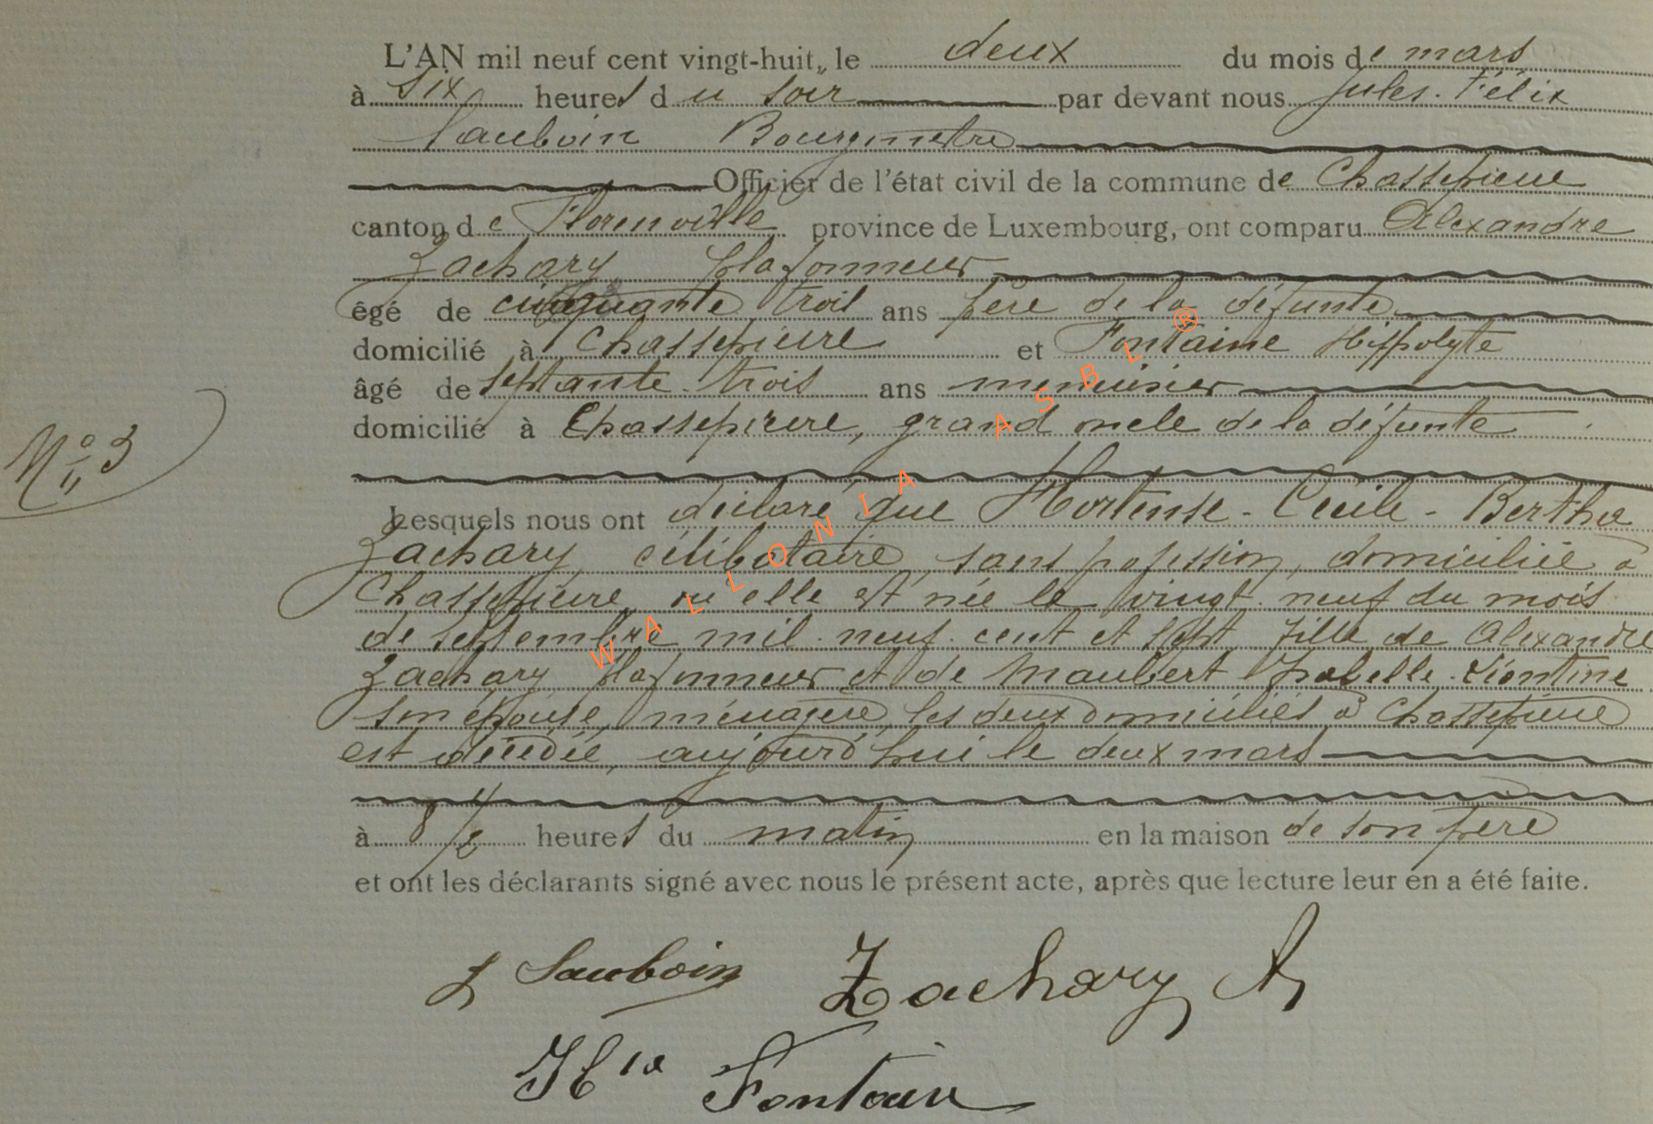 L'AN mil neuf cent vingt-huit, le deux du mois de mars
à six heures du soir par devant nous Jules. Félix
Sauboin Bourgmestre
Officier de l'état civil de la commune de Chassepierre
canton de Florenville province de Luxembourg, ont comparu Alexandre
Zachary plafonneur
âgé de cinquante trois ans père de la défunte
domicilié à Chassepierre et Fontaine Hippolyte
âgé de septante-trois ans menuisier
domicilié à Chassepierre, grand oncle de la défunte
N° 3
Lesquels nous ont déclaré que Hortense-Cécile-Bertha
Zachary, célibataire, sans profession, domiciliée à
Chassepierre, où elle est née le vingt-neuf du mois
de septembre mil-neuf-cent et sept, fille de Alexandre
Zachary plafonneur et de Maubert Isabelle-Léontine
son épouse, ménagère, les deux domiciliés à Chassepierre
est décédée, aujourd'hui le deux mars
à 8 1/2 heures du matin en la maison de son père
et ont les déclarants signé avec nous le présent acte, après que lecture leur en a été faite.
J Sauboin Zachary A
Hte Fontaine
WALLONIA ASBL ®